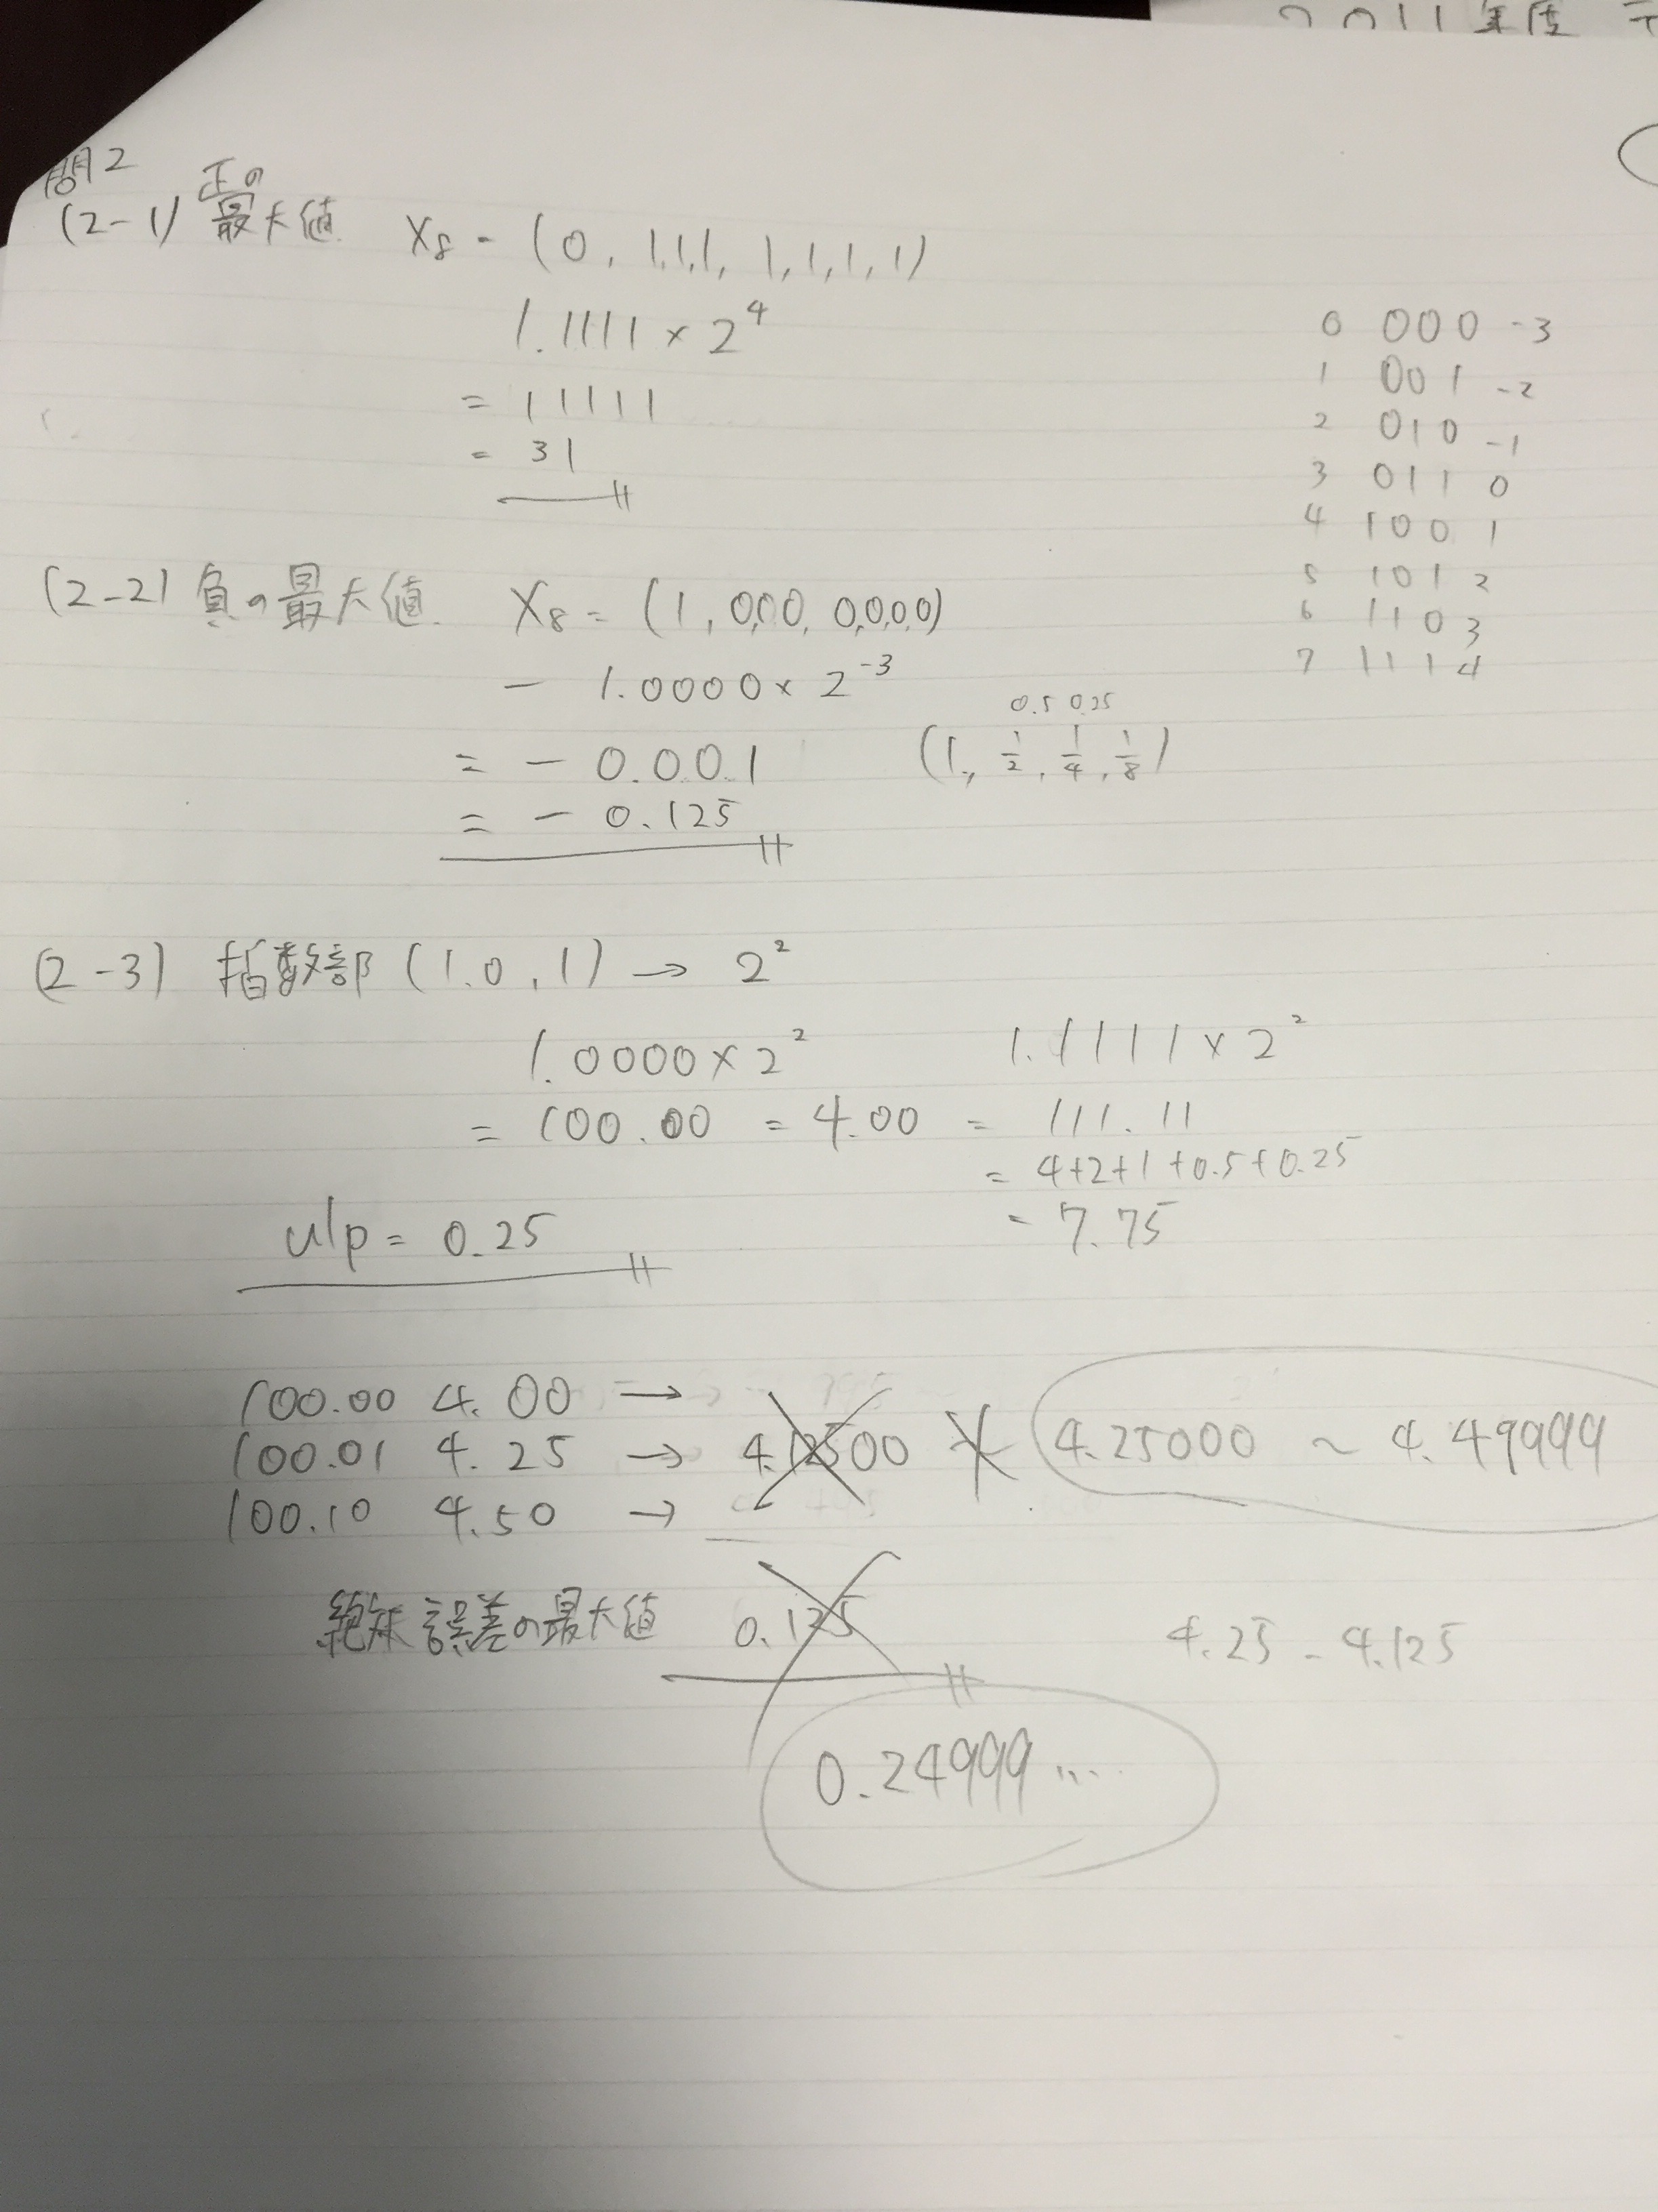 2011年度
問2
(2-1) 正の最大値 X8 = (0, 1,1,1, 1,1,1,1)
1.1111 × 2^4
= 11111
= 31
0 000 -3
1 001 -2
2 010 -1
3 011 0
4 100 1
5 101 2
6 110 3
7 111 4
(2-2) 負の最大値 X8 = (1, 0,0,0, 0,0,0,0)
- 1.0000 × 2^-3
= - 0.001
= - 0.125
0.5 0.25
(1, 1/2, 1/4, 1/8)
(2-3) 指数部 (1.0,1) → 2^2
1.0000 × 2^2
= 100.00 = 4.00
1.1111 × 2^2
= 111.11
= 4+2+1+0.5+0.25
= 7.75
ulp = 0.25
100.00 4.00 →
100.01 4.25 → 4.12500 4.25000 ~ 4.49999
100.10 4.50 →
絶対誤差の最大値 0.125
4.25 - 4.125
0.24999...